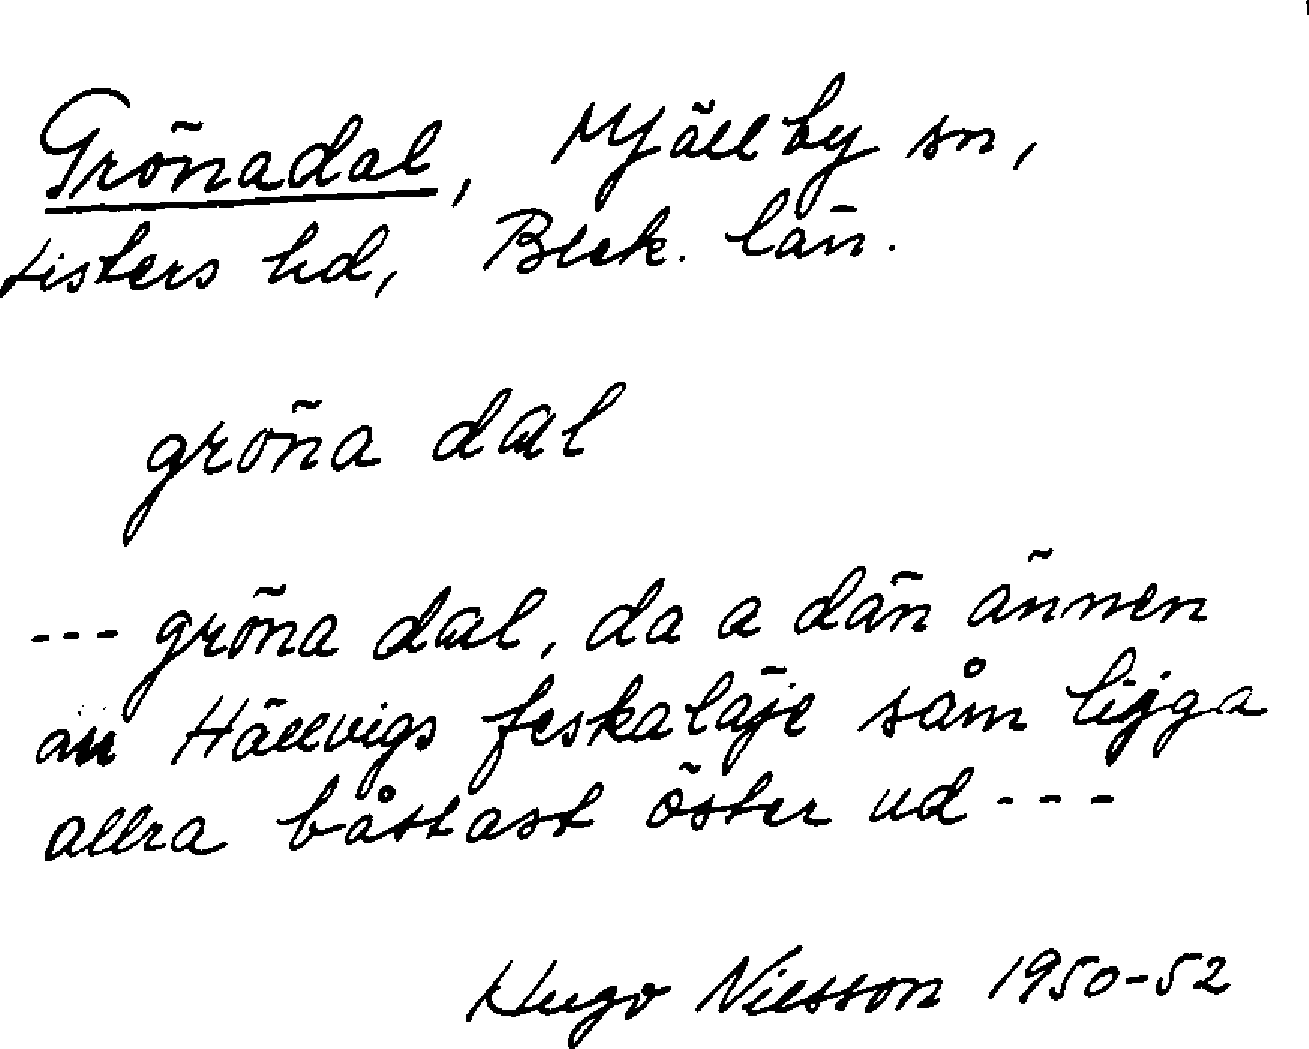 Grönadal, Mjällby sn,
Listers hd, Blek. län.
gröna dal
--- gröna dal, da a dän ännen
än Hällvigs feskaläje såm lijga
allra båttast öster ud ---
Hugo Nilsson 1950-52